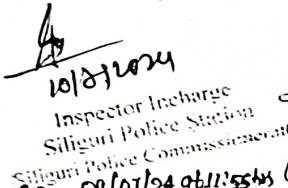 10/7/2024
Inspector Incharge
Siliguri Police Station
Siliguri Police Commissionerate
09/07/24 at 11:55 hrs